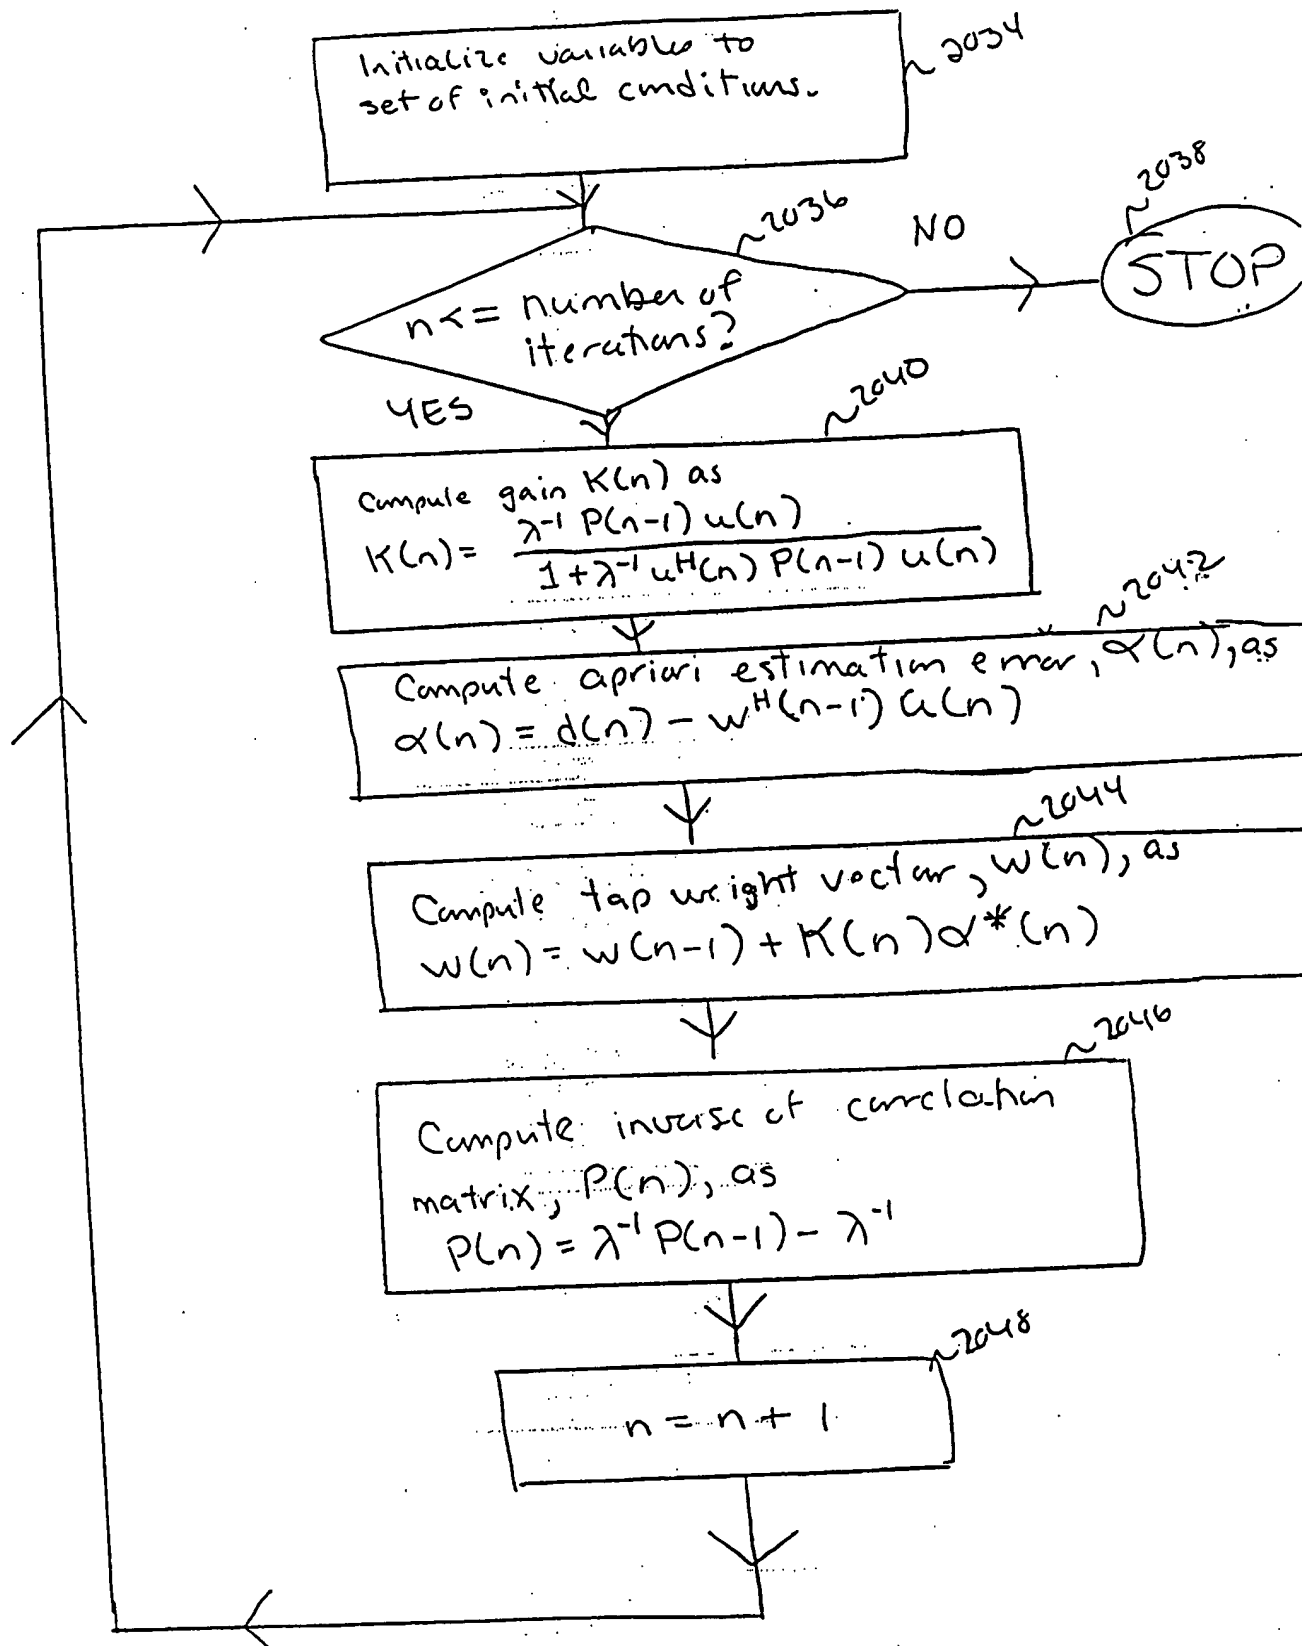 Initialize variables to
set of initial conditions.
~2034
~2036
n <= number of
iterations?
NO
~2038
STOP
YES
~2040
Compute gain K(n) as
K(n) = λ⁻¹ P(n-1) u(n)
1 + λ⁻¹ uᴴ(n) P(n-1) u(n)
~2042
Compute apriori estimation error, α(n), as
α(n) = d(n) - wᴴ(n-1) u(n)
~2044
Compute tap weight vector, w(n), as
w(n) = w(n-1) + K(n) α*(n)
~2046
Compute inverse of correlation
matrix, P(n), as
P(n) = λ⁻¹ P(n-1) - λ⁻¹
~2048
n = n + 1